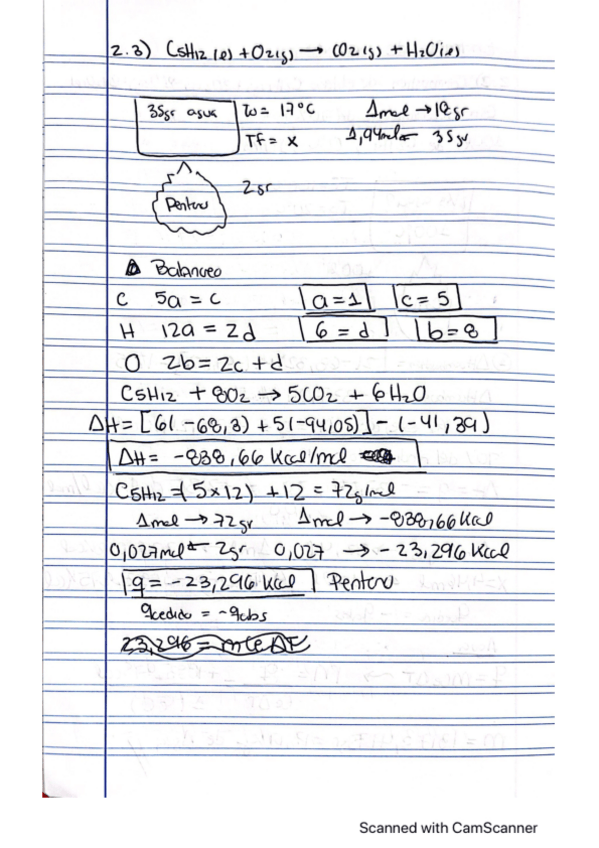 2.3) C5H12(l) + O2(g) → CO2(g) + H2O(l)
35gr agua
to = 17°C
Tf = x
1mol → 18gr
1,94mol ← 35gr
Pentano
2gr
Balanceo
C 5a = c a=1 c=5
H 12a = 2d 6=d b=8
O 2b = 2c + d
C5H12 + 8O2 → 5CO2 + 6H2O
ΔH = [6(-68,3) + 5(-94,05)] - (-41,39)
ΔH = -838,66 Kcal/mol
C5H12 = (5x12) + 12 = 72g/mol
1mol → 72gr 1mol → -838,66 Kcal
0,027mol ← 2gr 0,027 → -23,296 Kcal
q = -23,296 Kcal Pentano
qcedido = -qabs
23,296 = mceΔT
Scanned with CamScanner